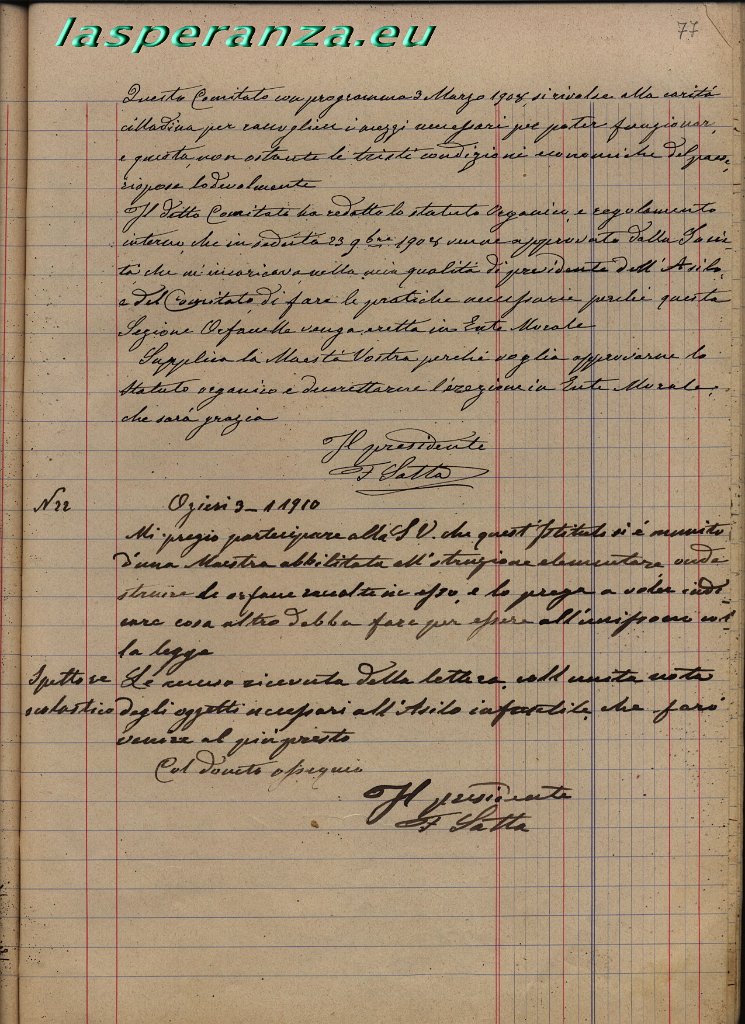 lasperanza.eu
77
Questo Comitato con programma 3 Marzo 1908, si rivolse alla carità
cittadina per raccogliere i mezzi necessari per poter funzionar,
e questa, non ostante le tristi condizioni economiche del paese,
rispose lodevolmente
Il detto Comitato ha redatto lo statuto Organico, e regolamento
interno, che in seduta 23 9bre 1908 venne approvato dalla
che m'incaricava nella mia qualità di presidente dell'Asilo,
e del Comitato, di fare le pratiche necessarie perché questa
Sezione Orfanelle venga eretta in Ente Morale
Supplica la Maestà Vostra perché voglia approvarne lo
statuto organico e decrettarne l'erezione in Ente Morale,
che sarà grazia
Il presidente
F Satta
N 22
Ozieri 3-1 1910
Mi pregio partecipare alla S V. che quest'Istituto si é munito
d'una Maestra abbilitata all'struzione elementare, onde
struire le orfane raccolte in esso, e lo prego a voler indi
care cosa altro debba fare per essere all'unissono col
la legge
Ispettore
scolastico
Le accuso ricevuta della lettera, coll'unita nota
degli oggetti necessari all'Asilo infantile, che farò
venire al più presto
Col dovuto ossequio
Il presidente
F Satta